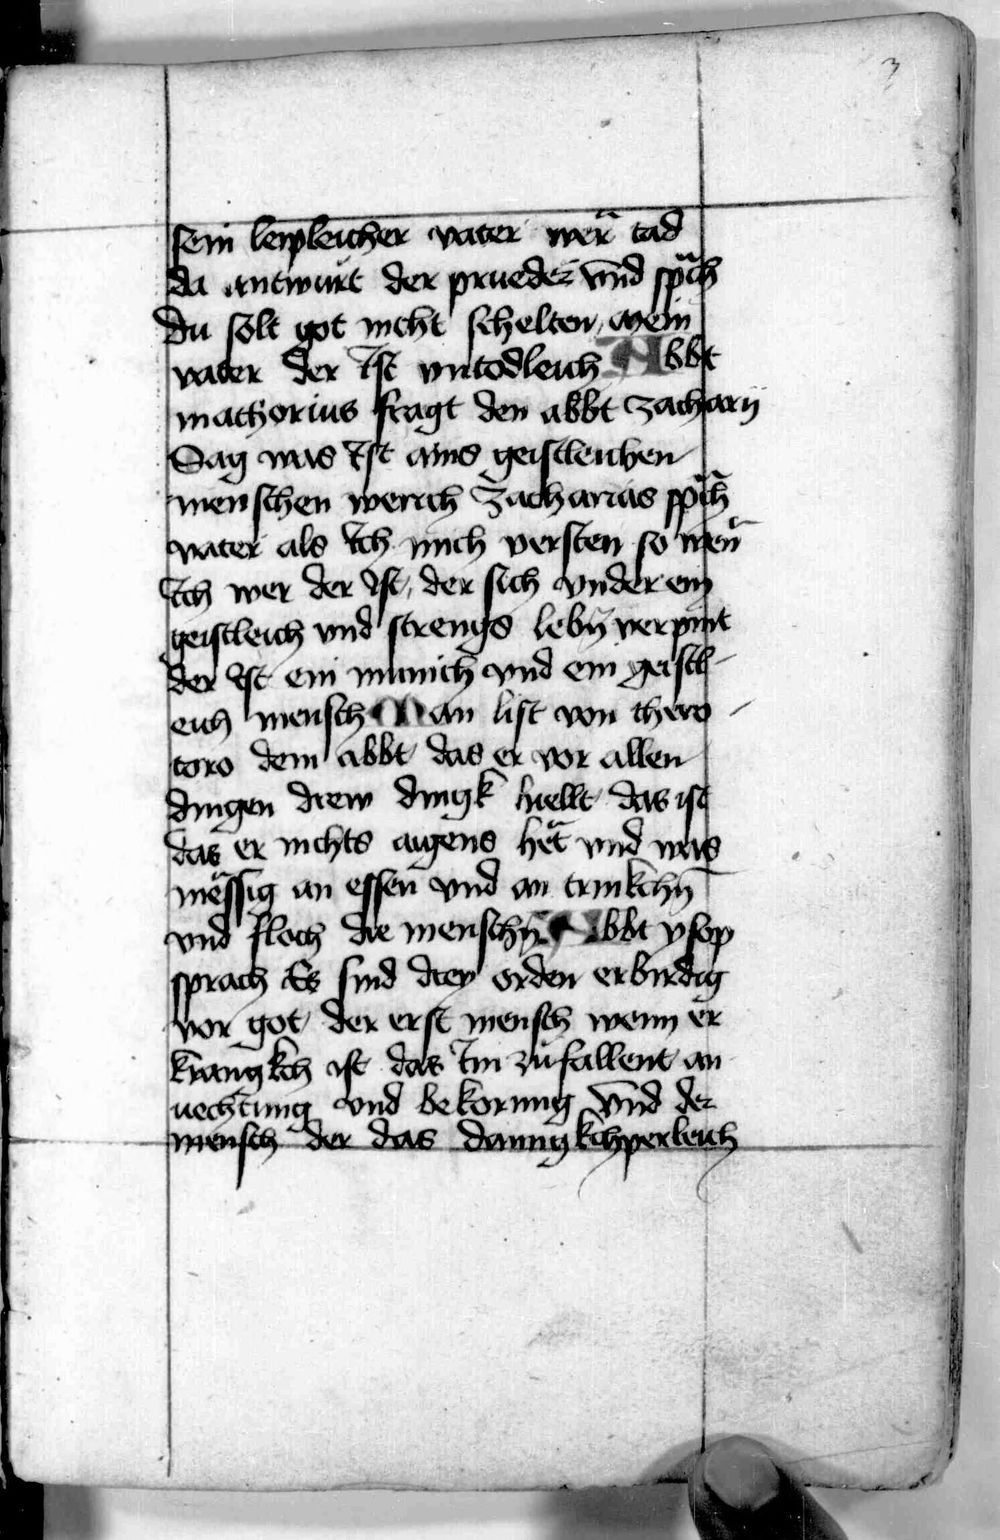 3
sein leipleicher vater wër tod
da antwurt der prueder vnd sprach
du solt got nicht schelten, mein
vater der Ist vntodleich Abbt
mathorius fragt den abbt zacharij
Sag was Ist ains geistleichen
menschen werch Zacharias sprach
vater als Ich mich versten so men
Ich wer der Ist, der sich vnder ein
geistleich vnd strengs lebn verpint
der Ist ein munich vnd ein geistl-
eich mensch Man list von theo-
toro dem abbt das er vor allen
dingen drew dingk hiellt das ist
das er nichts aigens het vnd was
mëssig an essen vnd an trinkchn
vnd floch die menschn Abbt ysop
sprach Es sind drey orden erbirdig
vor got der erst mensch wenn er
krangkch ist das Im zufallent an
uechtung vnd bekorung vnd der
mensch der das danngkchperleich